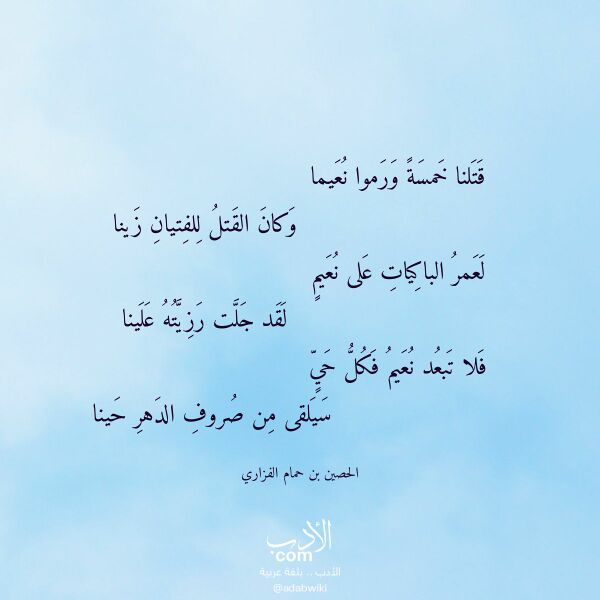 قَتَلنا خَمسَةً وَرَموا نُعَيما
وَكانَ القَتلُ لِلفِتيانِ زَينا
لَعَمرُ الباكِياتِ عَلى نُعَيمٍ
لَقَد جَلَّت رَزِيَّتُهُ عَلَينا
فَلا تَبعُد نُعَيمُ فَكُلُّ حَيٍّ
سَيَلقى مِن صُروفِ الدَهرِ حَينا
الحصين بن حمام الفزاري
الأدب
com
الأدب .. بلغة عربية
@adabwiki